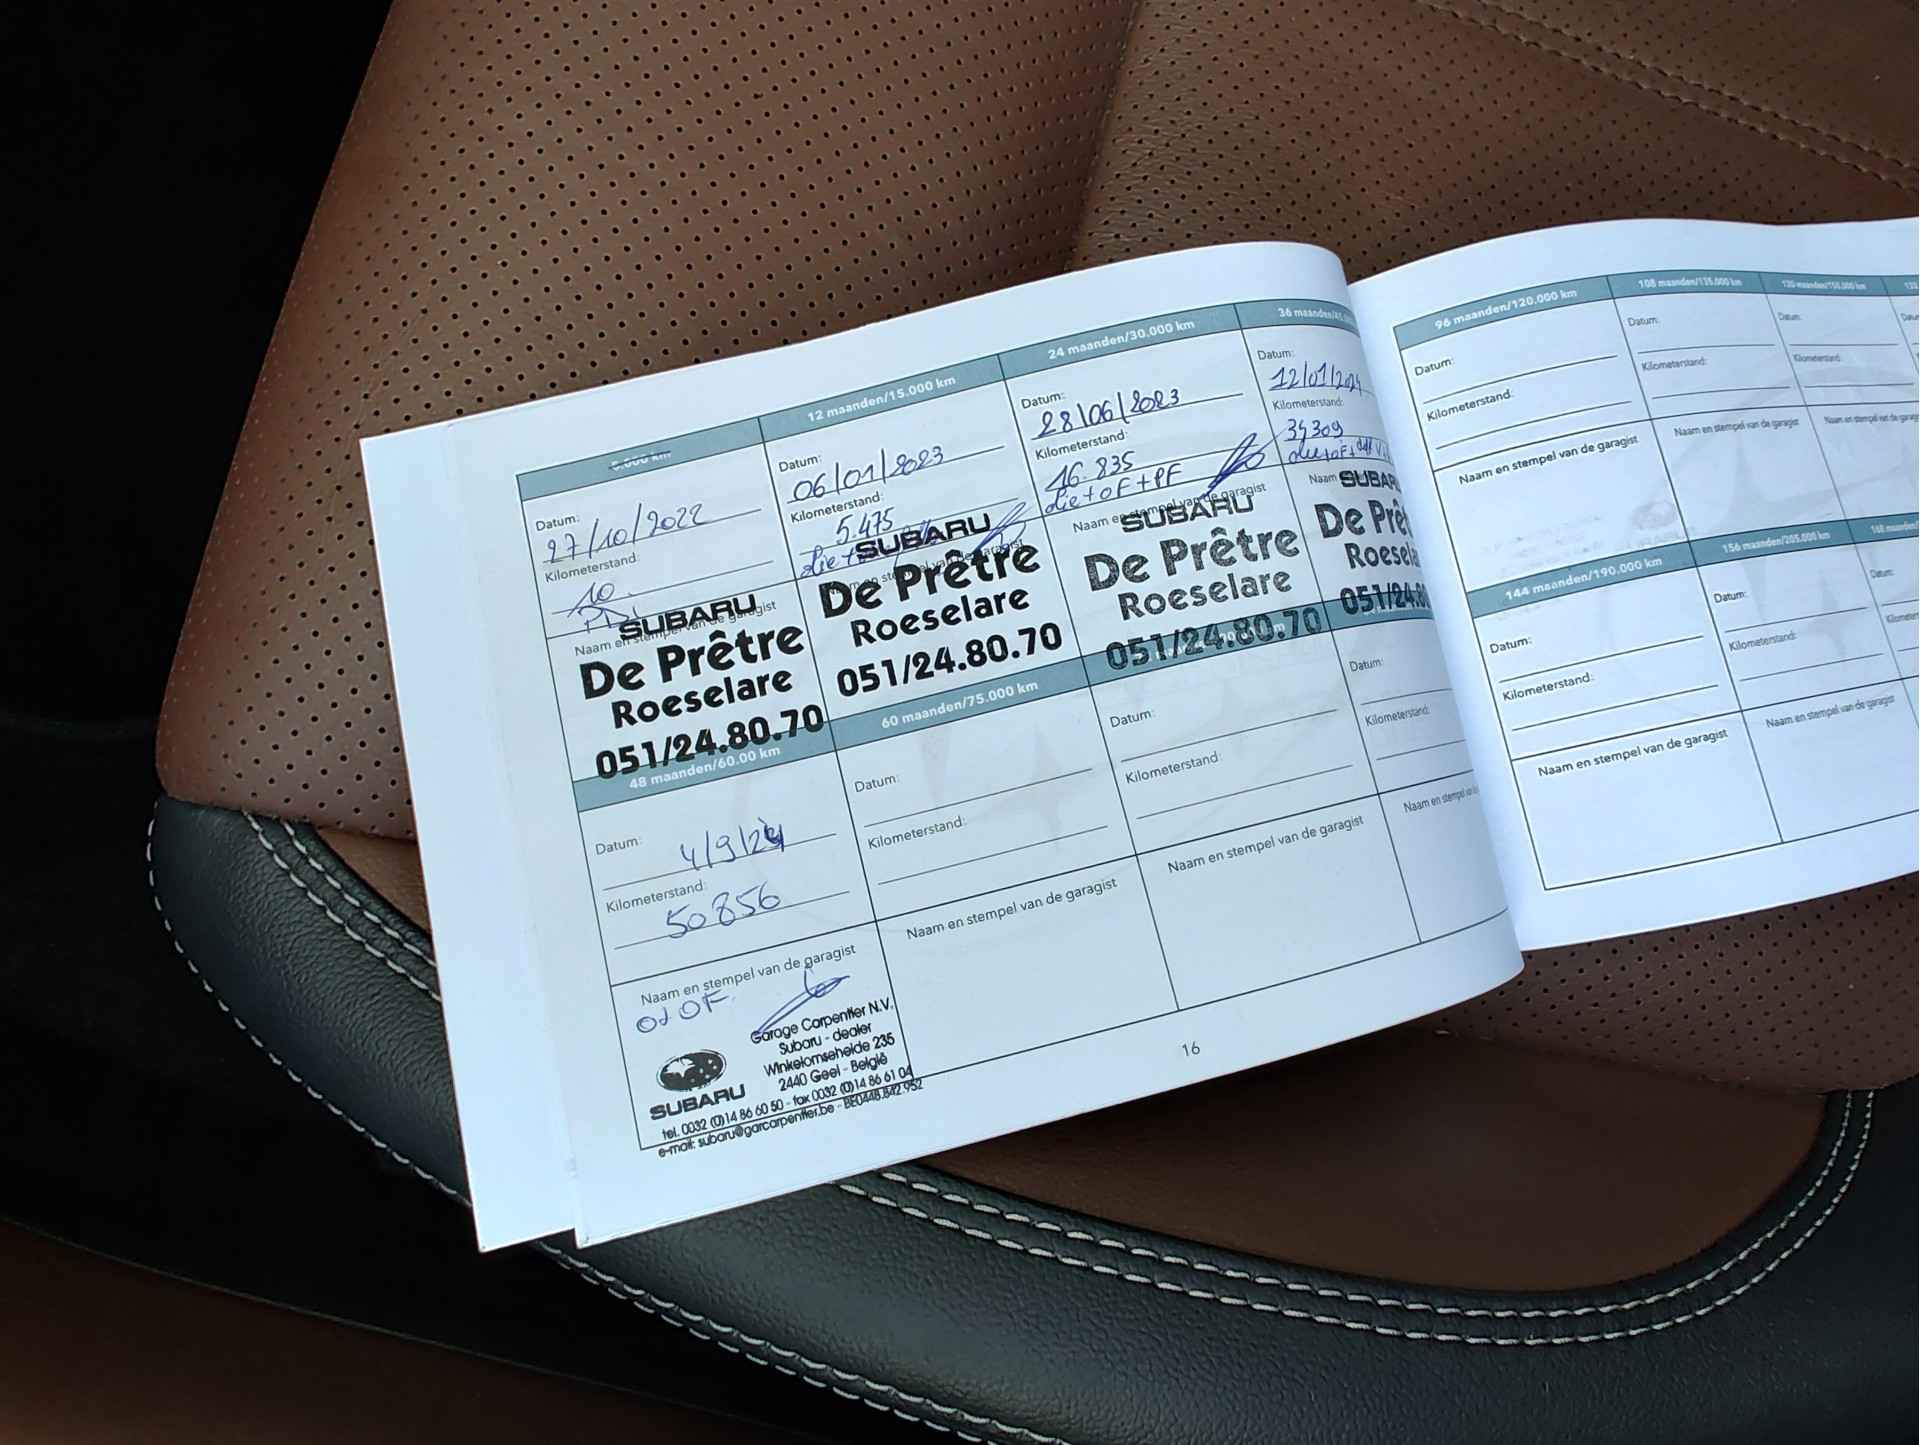 5.000 km
Datum:
27/10/2022
Kilometerstand:
10
Naam en stempel van de garagist
SUBARU
De Prêtre
Roeselare
051/24.80.70
12 maanden/15.000 km
Datum:
06/01/2023
Kilometerstand:
5.475
SUBARU
De Prêtre
Roeselare
051/24.80.70
24 maanden/30.000 km
Datum:
28/06/2023
Kilometerstand:
16.835
olie+OF+PF
Naam en stempel van de garagist
SUBARU
De Prêtre
Roeselare
051/24.80.70
36 maanden
Datum:
12/01/2024
Kilometerstand:
Naam
SUBARU
De Prêt
Rosela
051/24.8
48 maanden/60.00 km
Datum:
4/9/24
Kilometerstand:
50856
Naam en stempel van de garagist
OF
Garage Carpentier N.V.
Subaru - dealer
Winkelomseheide 235
2440 Geel - België
SUBARU
tel. 0032 (0)14 86 60 50 - fax 0032 (0)14 86 61 04
e-mail: subaru@garcarpentier.be - BE0448.842.952
60 maanden/75.000 km
Datum:
Kilometerstand:
Naam en stempel van de garagist
Datum:
Kilometerstand:
Naam en stempel van de garagist
Datum:
Kilometerstand:
Naam en stempel van
16
96 maanden/120.000 km
Datum:
Kilometerstand:
Naam en stempel van de garagist
108 maanden/135.000 km
Datum:
Kilometerstand:
Naam en stempel van de garagist
120 maanden/150.000 km
Datum:
Kilometerstand:
Naam en stempel van de garagist
144 maanden/190.000 km
Datum:
Kilometerstand:
Naam en stempel van de garagist
156 maanden/205.000 km
Datum:
Kilometerstand:
Naam en stempel van de garagist
168 maanden
Datum: